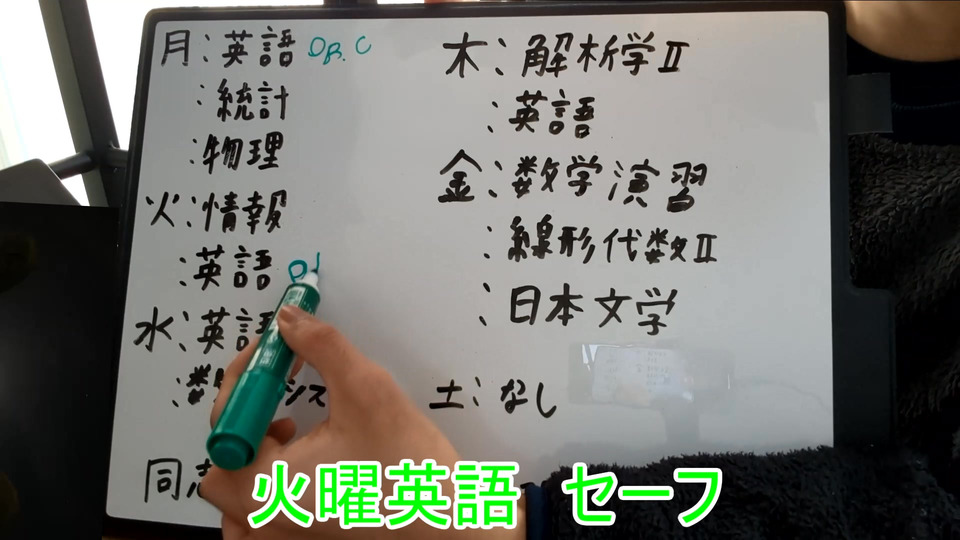 月：英語 OR.C
：統計
：物理
火：情報
：英語
水：英語
：数 シス
同志
木：解析学Ⅱ
：英語
金：数学演習
：線形代数Ⅱ
：日本文学
土：なし
火曜英語 セーフ